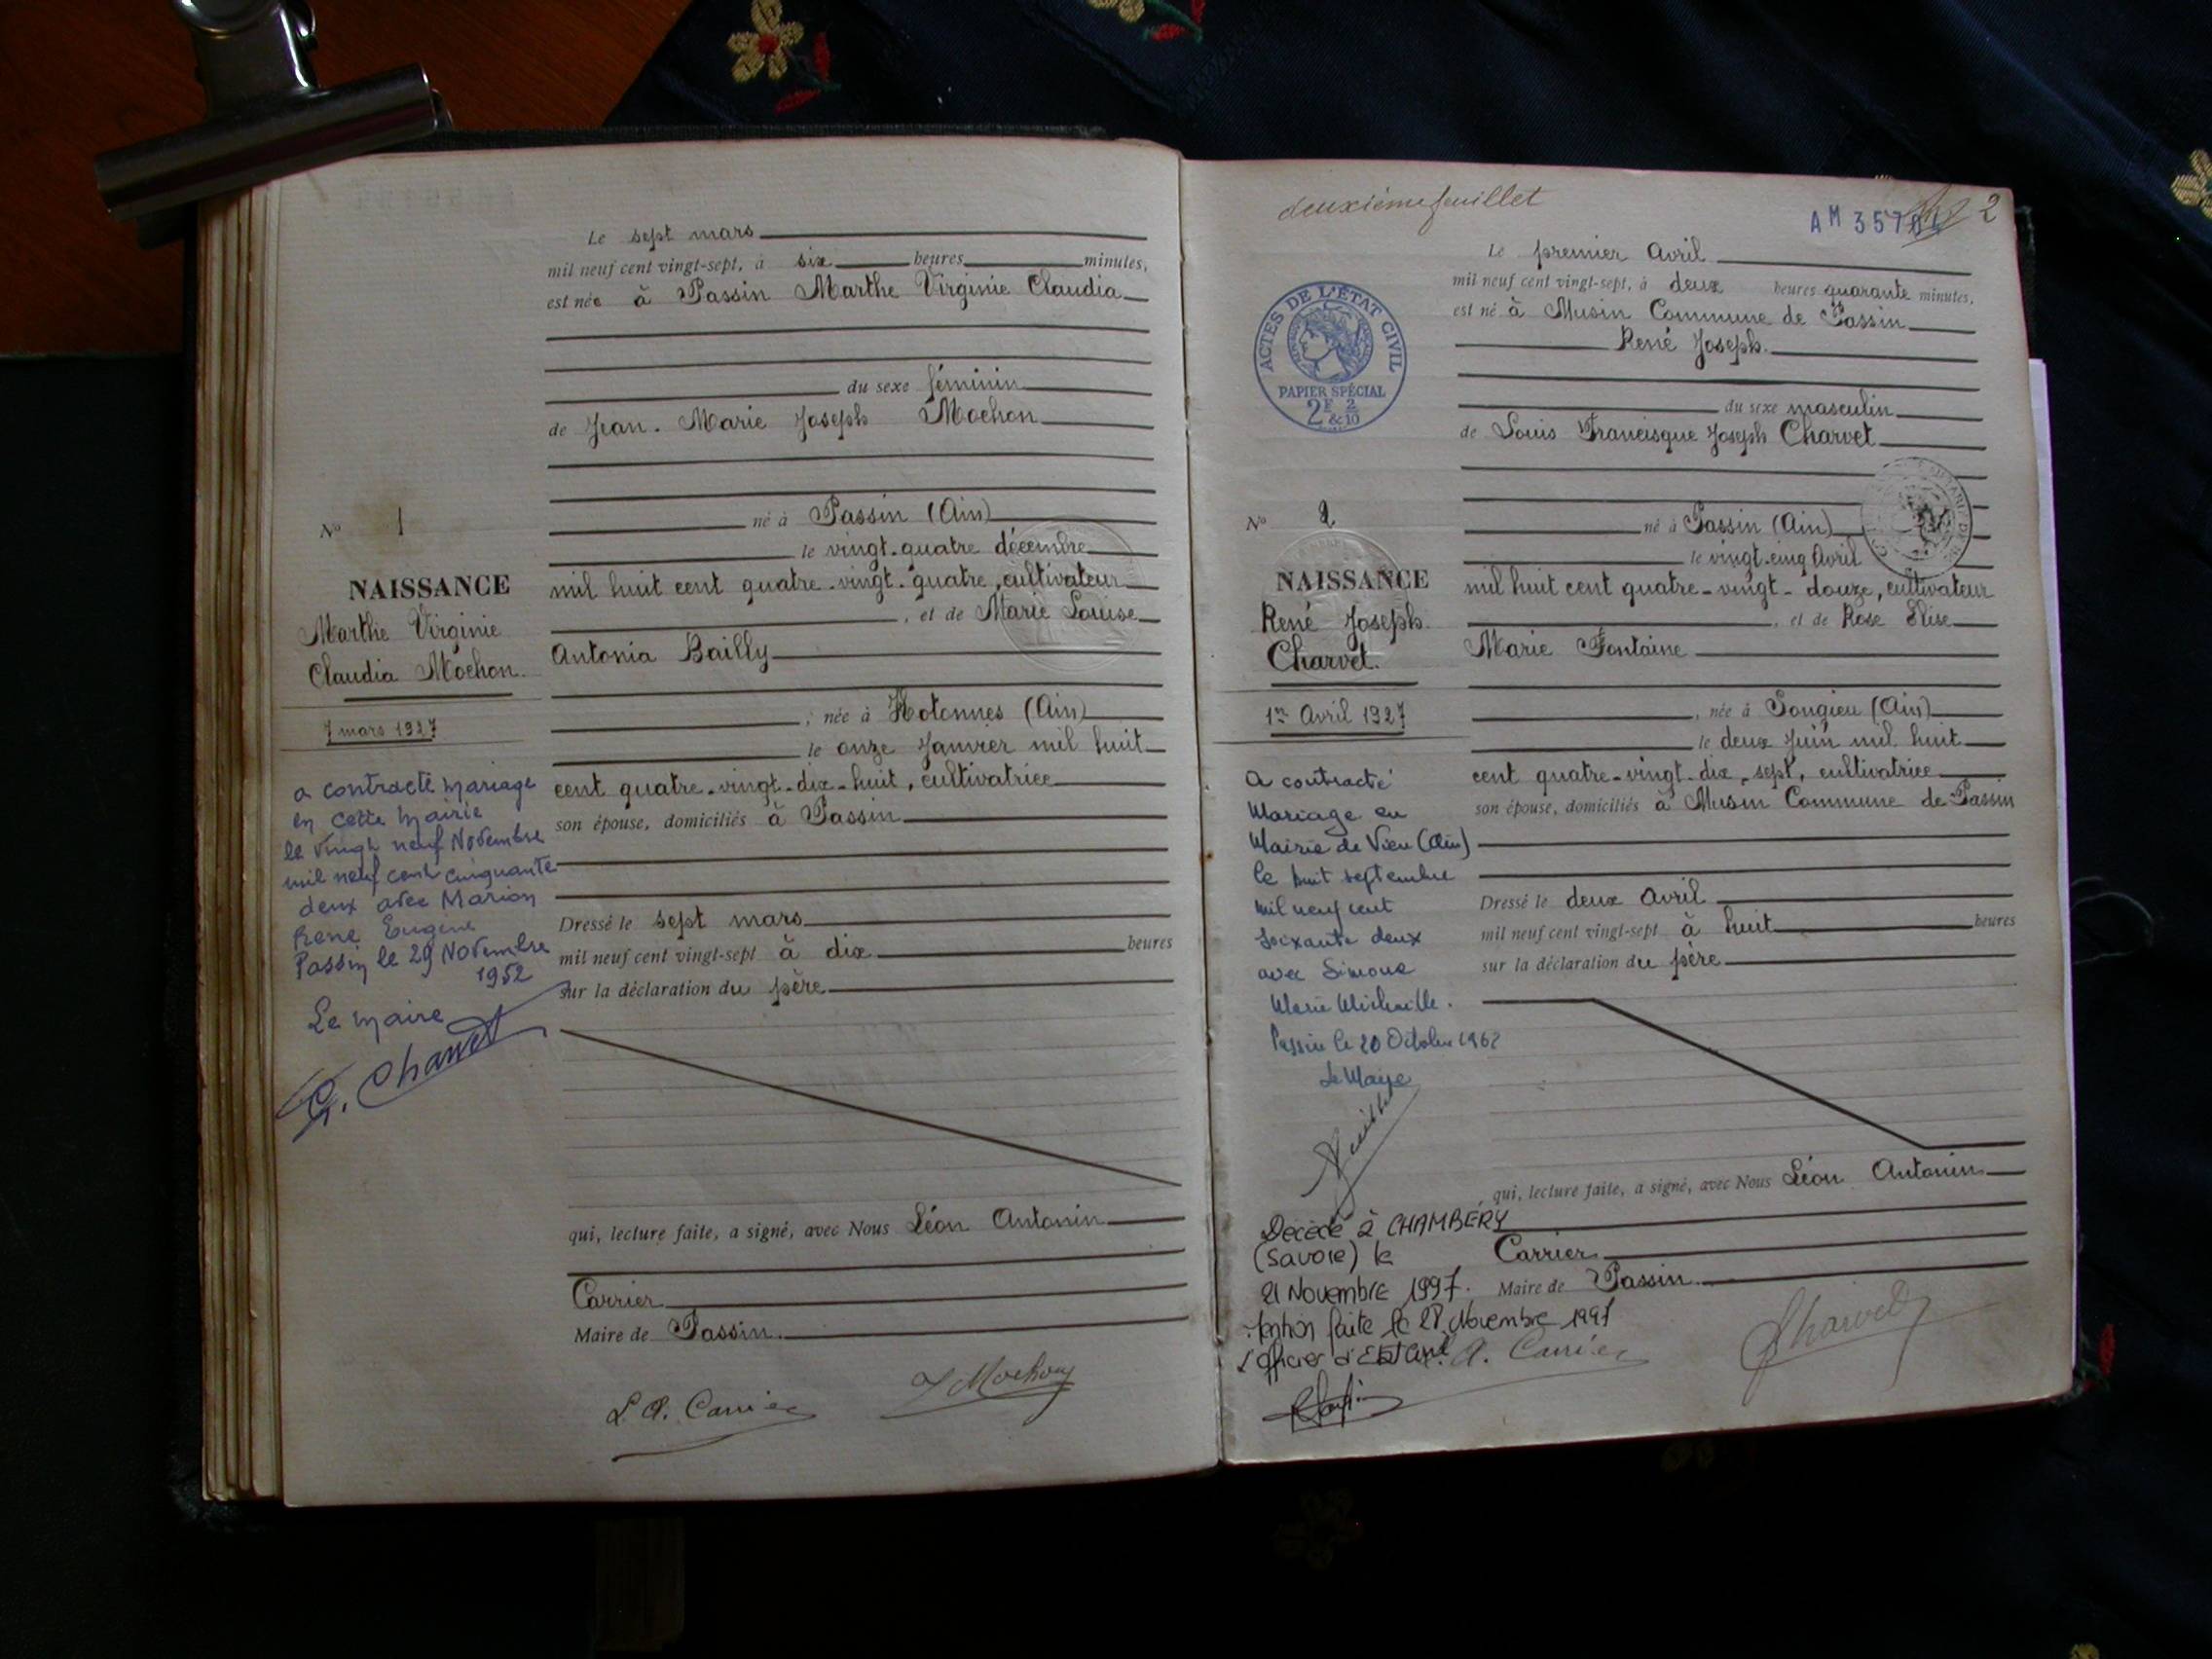 Le sept mars
mil neuf cent vingt-sept, à six heures minutes,
est née à Passin Marthe Virginie Claudia
du sexe féminin
de Jean-Marie Joseph Mochon
né à Passin (Ain)
le vingt-quatre décembre
mil huit cent quatre-vingt-quatre, cultivateur
, et de Marie Louise
Antonia Bailly
, née à Hotonnes (Ain)
le onze Janvier mil huit
cent quatre-vingt-dix-huit, cultivatrice
son épouse, domiciliés à Passin
Dressé le sept mars
mil neuf cent vingt-sept à dix heures
sur la déclaration du père
qui, lecture faite, a signé, avec Nous Léon Antonin
Carrier
Maire de Passin.
L. A. Carrier
J Mochon
N° 1
NAISSANCE
Marthe Virginie
Claudia Mochon.
7 mars 1927
a contracté mariage
en cette mairie
le vingt neuf Novembre
mil neuf cent cinquante
deux avec Marion
René Eugène
Passin le 29 Novembre
1952
Le maire
G. Charvet
deuxième feuillet
AM 357 2
ACTES DE L'ÉTAT CIVIL
PAPIER SPÉCIAL
2F 2
&10
Le premier Avril
mil neuf cent vingt-sept, à deux heures quarante minutes,
est né à Musin Commune de Passin
René Joseph.
du sexe masculin
de Louis Francisque Joseph Charvet
né à Passin (Ain)
le vingt-cinq Avril
mil huit cent quatre-vingt-douze, cultivateur
, et de Rose Elise
Marie Fontaine
, née à Songieu (Ain)
le deux Juin mil huit
cent quatre-vingt-dix-sept, cultivatrice
son épouse, domiciliés à Musin Commune de Passin
Dressé le deux Avril
mil neuf cent vingt-sept à huit heures
sur la déclaration du père
qui, lecture faite, a signé, avec Nous Léon Antonin
Carrier
Maire de Passin
A. Carrier
Charvet
N° 2
NAISSANCE
René Joseph
Charvet.
1er Avril 1927
a contracté
Mariage en
Mairie de Vieu (Ain)
le huit septembre
mil neuf cent
soixante deux
avec Simone
Marie
Passin le 20 Octobre 1962
Le Maire
Décédé à CHAMBÉRY
(Savoie) le
21 Novembre 1997.
Mention faite le 28 Novembre 1997
L'officier d'Etat Civil.